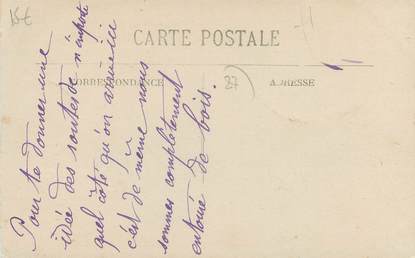 15€
CARTE POSTALE
CORRESPONDANCE
27
ADRESSE
Pour te donner une
idée des routes de n'importe
quel côté qu'on arrive ici
c'est de même nous
sommes complètement
entouré de bois.